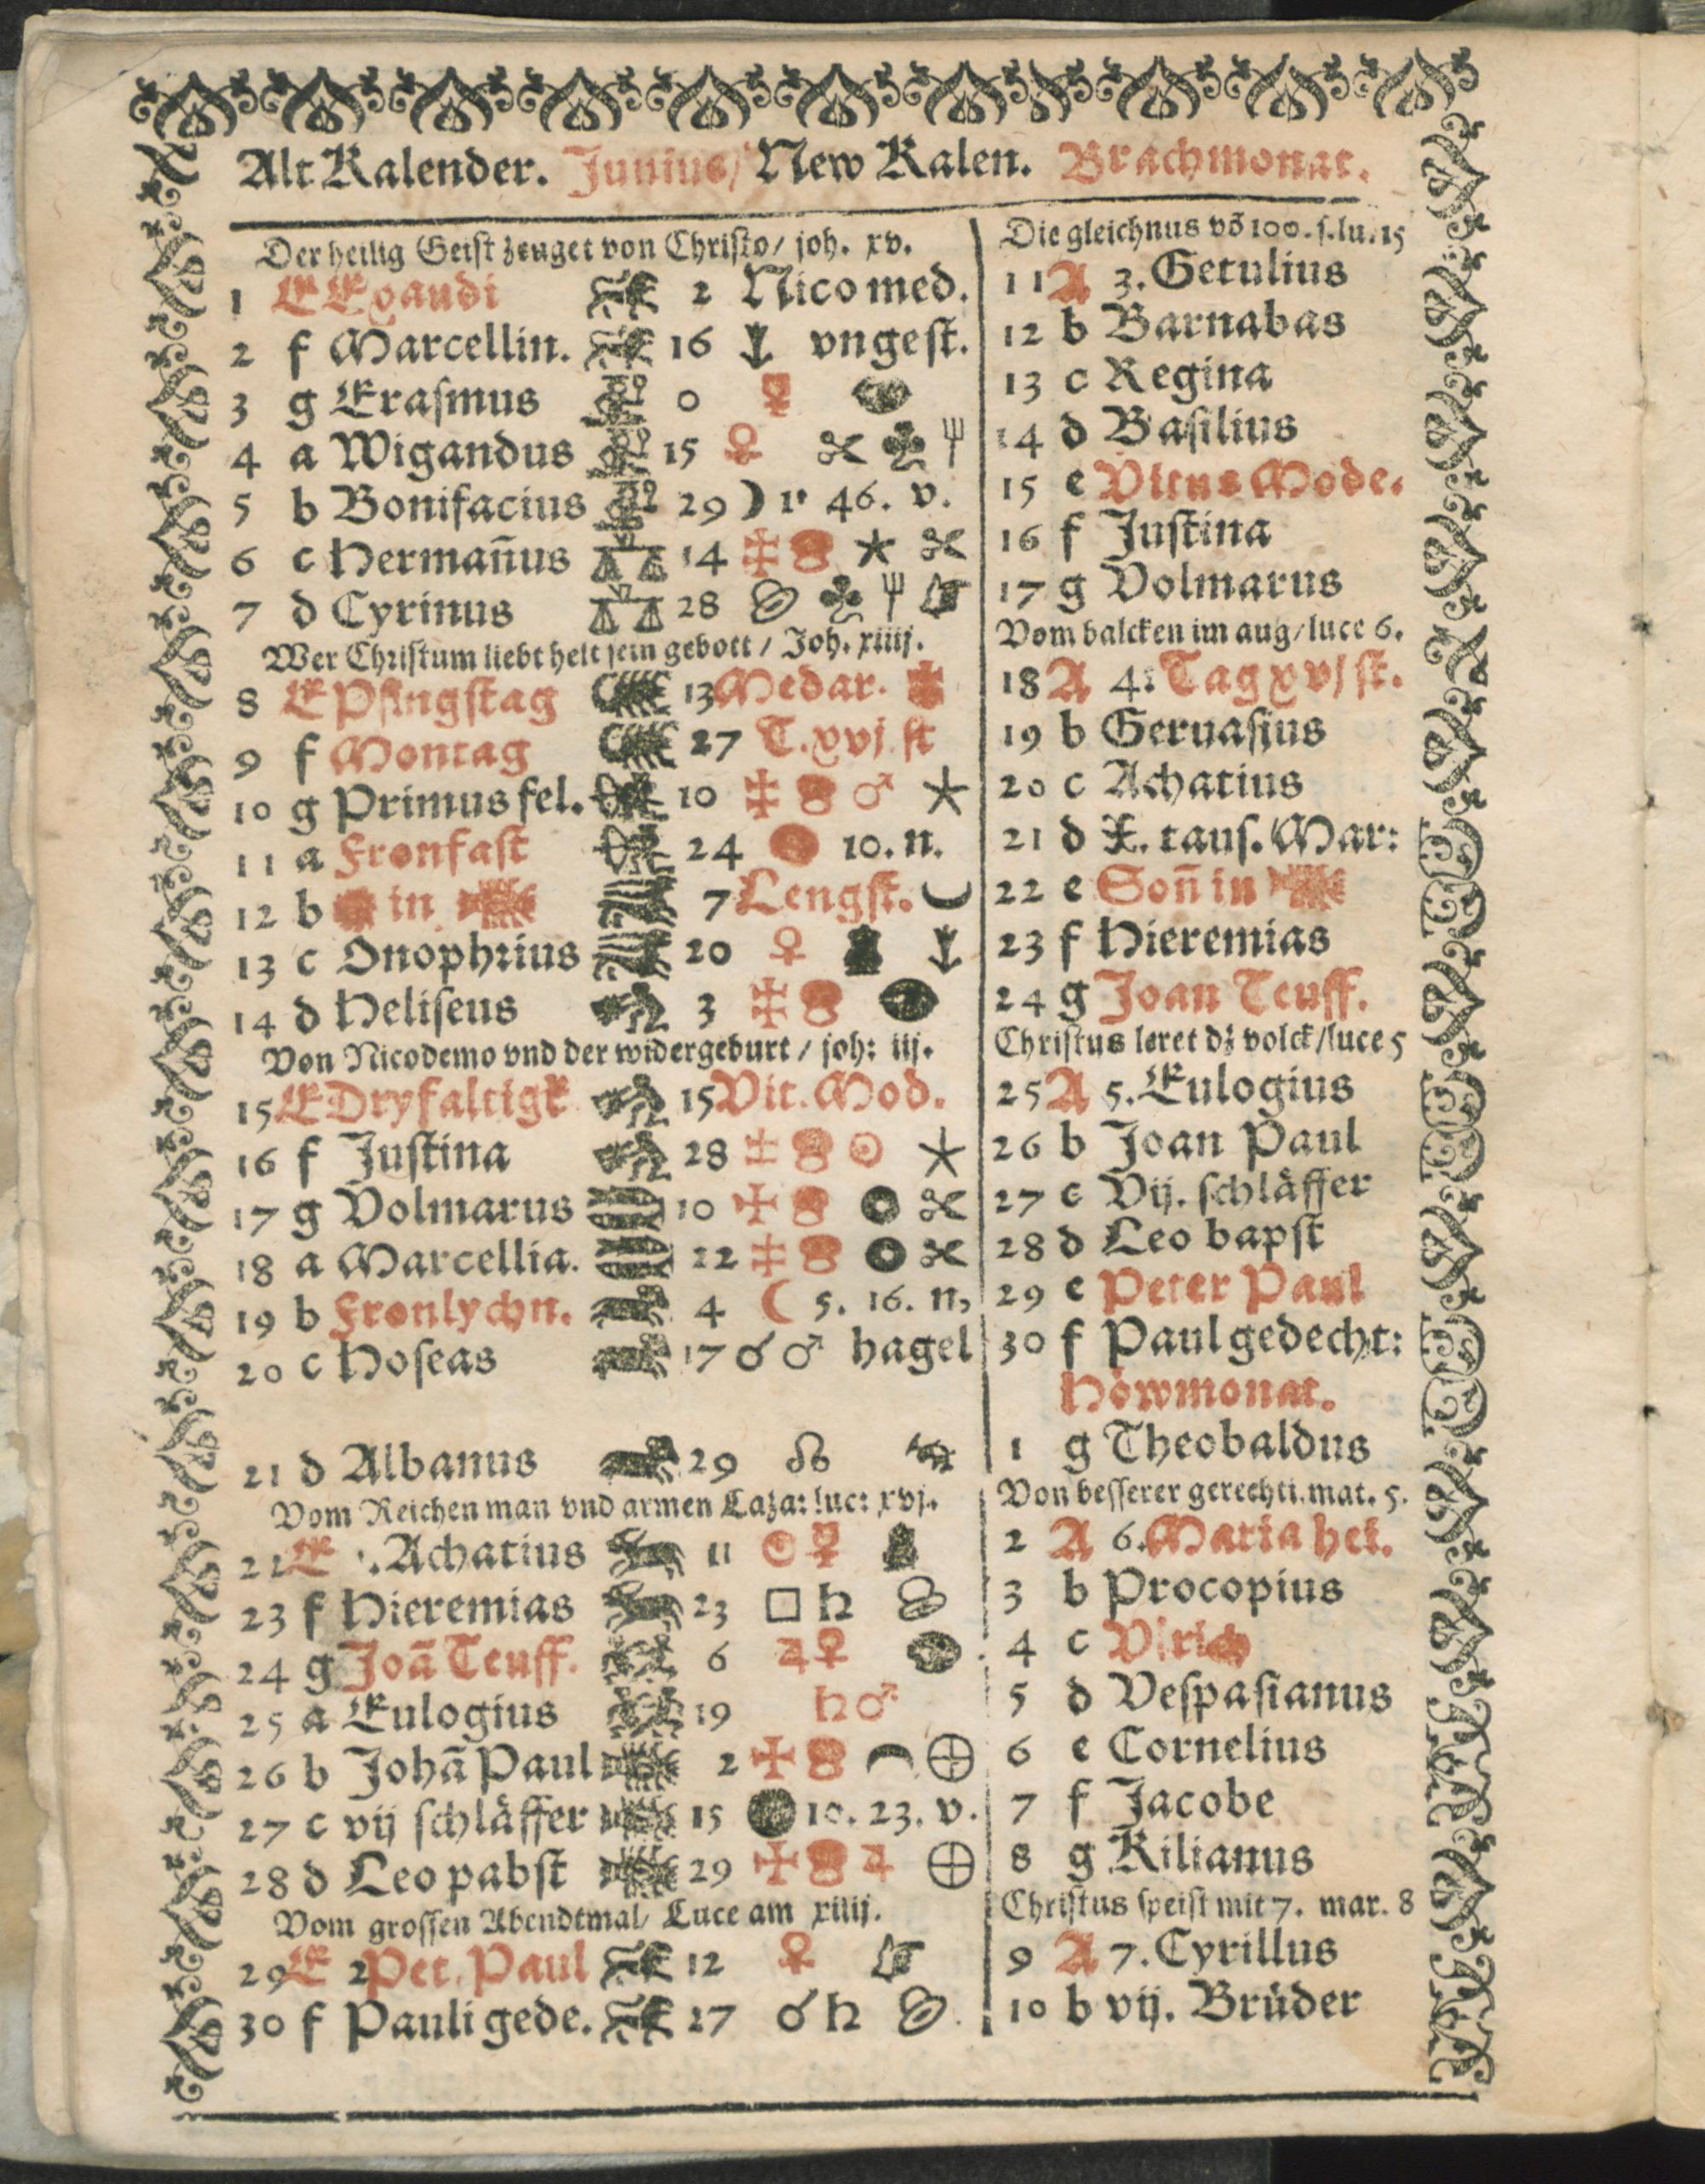 Alt Kalender. Junius/ New Kalen. Brachmonat.
Der heilig Geist zeuget von Christo/ joh. xv.
1 E Exaudi 2 Nicomed.
2 f Marcellin. 16 vngest.
3 g Erasmus 0 ☿
4 a Wigandus 15 ♀
5 b Bonifacius 29 ☽ 1 46. v.
6 c Hermañus 14
7 d Cyrinus 28
Wer Christum liebt helt sein gebott / Joh. xiiij.
8 E Pfingstag 13 Medar.
9 f Montag 27 T. xvj. st
10 g Primus fel. 10 ♂
11 a Fronfast 24 10. n.
12 b in 7 Lengst.
13 c Onophrius 20 ♀
14 d Heliseus 3
Von Nicodemo vnd der widergeburt / joh: iij.
15 E Dryfaltigk 15 Vit. Mod.
16 f Justina 28 ☉
17 g Volmarus 10
18 a Marcellia. 22
19 b Fronlychn. 4 ☾ 5. 16. n,
20 c Hoseas 17 ☌ ♂ hagel
21 d Albanus 29 ☊
Vom Reichen man vnd armen Laza: luc: xvj.
22 E Achatius 11 ☉ ☿
23 f Hieremias 23 □ ♄
24 g Joā Teuff. 6 ♃ ♀
25 a Eulogius 19 ♄ ♂
26 b Johā Paul 2
27 c vij schlåffer 15 10. 23. v.
28 d Leo pabst 29 ♃
Vom grossen Abendtmal/ Luce am xiiij.
29 E 2 Pet. Paul 12 ♀
30 f Pauli gede. 27 ☌ ♄
Die gleichnus võ 100. s. lu. 15
11 A 3. Getulius
12 b Barnabas
13 c Regina
14 d Basilius
15 e Vitus Mode.
16 f Justina
17 g Volmarus
Vom balcken im aug/ luce 6.
18 A 4: Tag xvj st.
19 b Geruasius
20 c Achatius
21 d X. taus. Mar:
22 e Soñ in
23 f Hieremias
24 g Joan Teuff.
Christus leret dz volck/ luce 5
25 A 5. Eulogius
26 b Joan Paul
27 c Vij. schlåffer
28 d Leo bapst
29 e Peter Paul
30 f Paul gedecht:
Höwmonat.
1 g Theobaldus
Von besserer gerechti. mat. 5.
2 A 6. Maria hei.
3 b Procopius
4 c Vlrich
5 d Vespasianus
6 e Cornelius
7 f Jacobe
8 g Kilianus
Christus speist mit 7. mar. 8
9 A 7. Cyrillus
10 b vij. Brüder